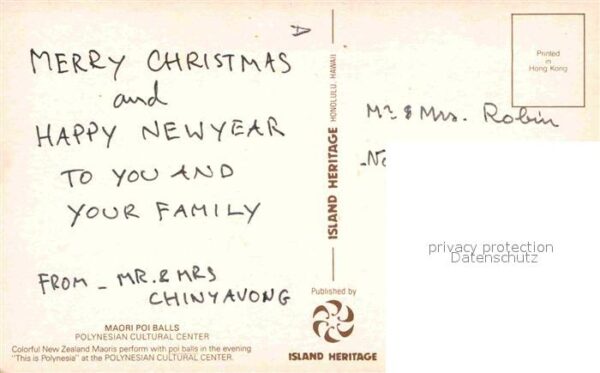 MERRY CHRISTMAS
and
HAPPY NEW YEAR
TO YOU AND
YOUR FAMILY
FROM - MR. & MRS
CHINYAVONG
MAORI POI BALLS
POLYNESIAN CULTURAL CENTER
Colorful New Zealand Maoris perform with poi balls in the evening
"This is Polynesia" at the POLYNESIAN CULTURAL CENTER.
ISLAND HERITAGE HONOLULU, HAWAII
Published by
ISLAND HERITAGE
Printed
in
Hong Kong
Mr & Mrs. Robin
privacy protection
Datenschutz